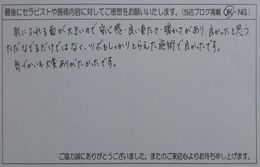 最後にセラピストや施術内容に対してご感想をお願いいたします。(当店ブログ掲載 OK・NG)
肌にふれる面が大きいので安心感・良い重たさ・暖かさがあり、良かったと思う。
ただなでるだけではなく、ツボもしっかりとらえた施術で良かったです。
気づかいも大変ありがたかったです。
ご協力誠にありがとうございました。またのご来店心よりお待ち申し上げます。